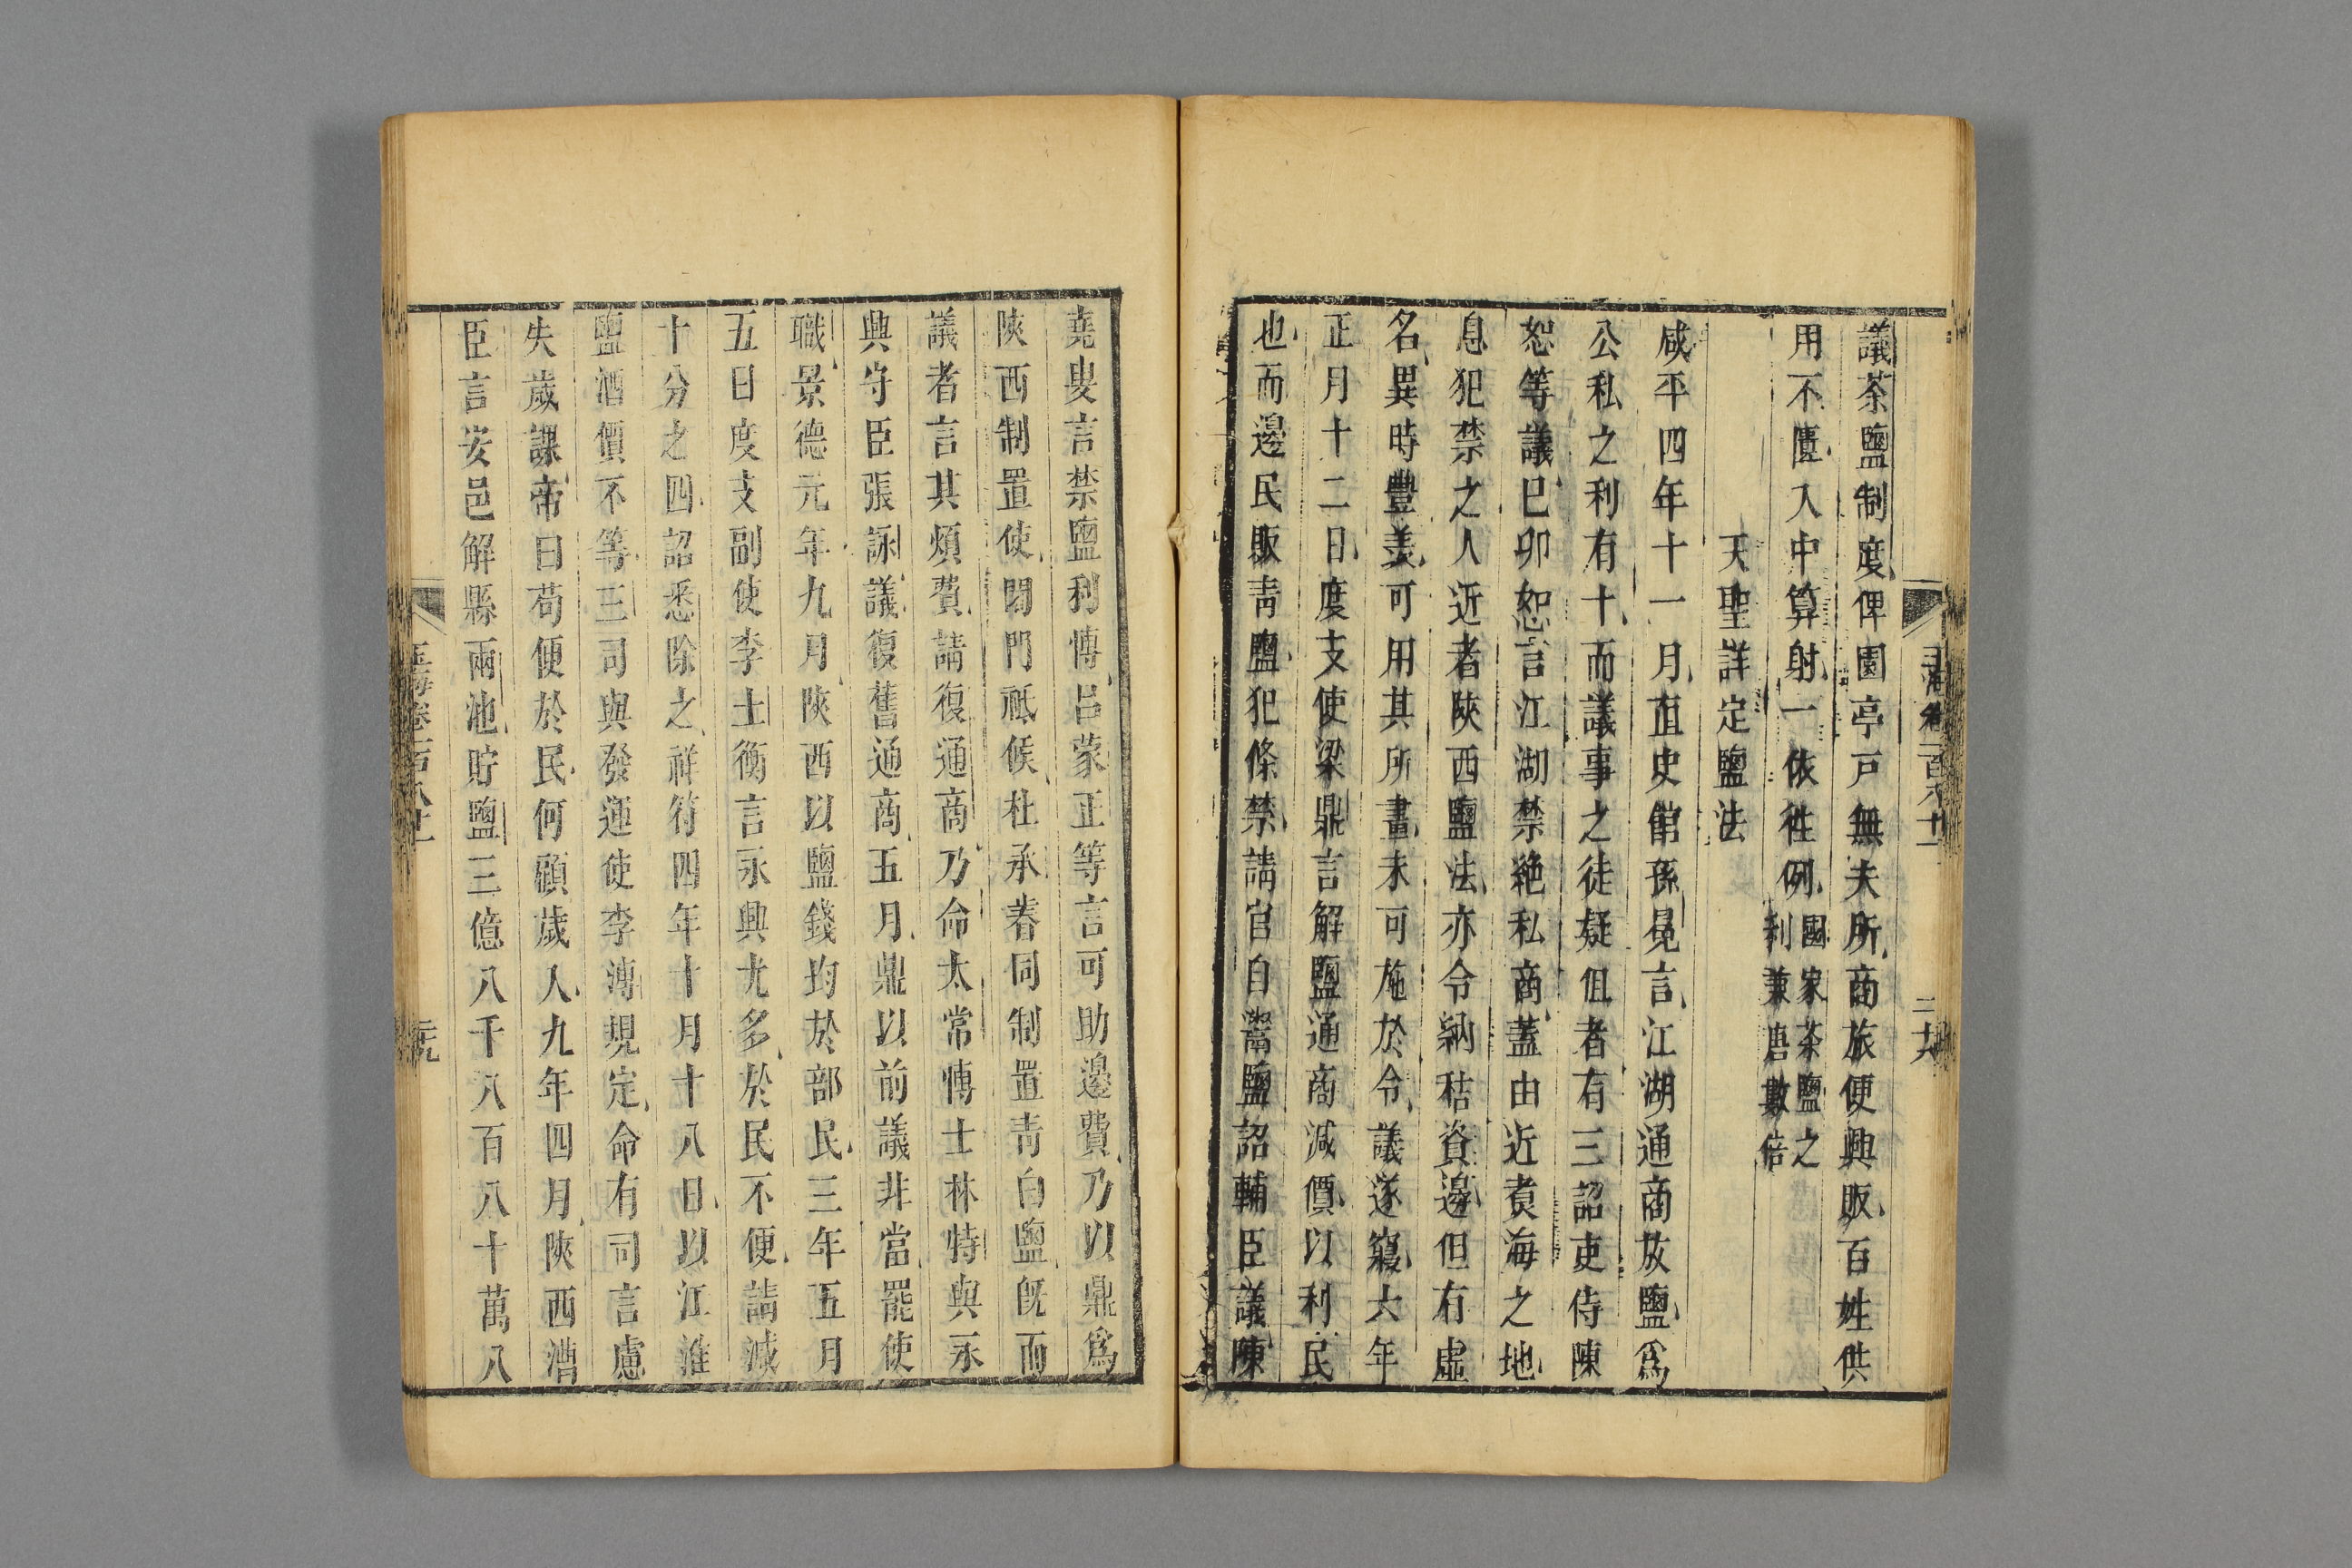 議茶鹽制度俾園亭戸無失所商旅便興販百姓供
用不匱入中算射一依徃例國家茶鹽之利兼唐數倍
天聖詳定鹽法
咸平四年十一月直史館孫冕言江湖通商放鹽爲
公私之利有十而議事之徒疑伹者有三詔吏侍陳
恕等議巳卯恕言江湖禁絶私商蓋由近煑海之地
息犯禁之人近者陝西鹽法亦令納秸資邊但有虛
名異時豐羡可用其所畫未可施於今議遂寢六年
正月十二日度支使梁鼎言解鹽通商減價以利民
也而邊民販靑鹽犯條禁請官自鬻鹽詔輔臣議陳
堯叟言禁鹽利博吕蒙正等言可助邊費乃以鼎爲
陝西制置使閤門祗候杜承睿同制置靑白鹽旣而
議者言其煩費請復通商乃命太常博士林特與永
興守臣張詠議復舊通商五月鼎以前議非當罷使
職景德元年九月陝西以鹽錢均於部民三年五月
五日度支副使李士衡言永興尢多於民不便請減
十分之四詔悉除之祥符四年十月十八日以江淮
鹽酒價不等三司與發運使李溥規定命有司言慮
失歲課帝曰苟便於民何顧歲人九年四月陝西漕
臣言安邑解縣兩池貯鹽三億八千八百八十萬八
玉海卷一百八十一
二十八
玉海卷一百八十一
二十九